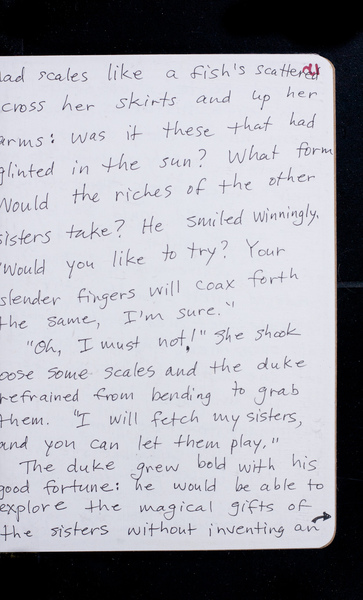 had scales like a fish's scattered
across her skirts and up her
arms: was it these that had
glinted in the sun? What form
Would the riches of the other
sisters take? He smiled winningly.
"Would you like to try? Your
slender fingers will coax forth
the same, I'm sure."
"Oh, I must not!" She shook
loose some scales and the duke
refrained from bending to grab
them. "I will fetch my sisters,
and you can let them play."
The duke grew bold with his
good fortune: he would be able to
explore the magical gifts of
the sisters without inventing an